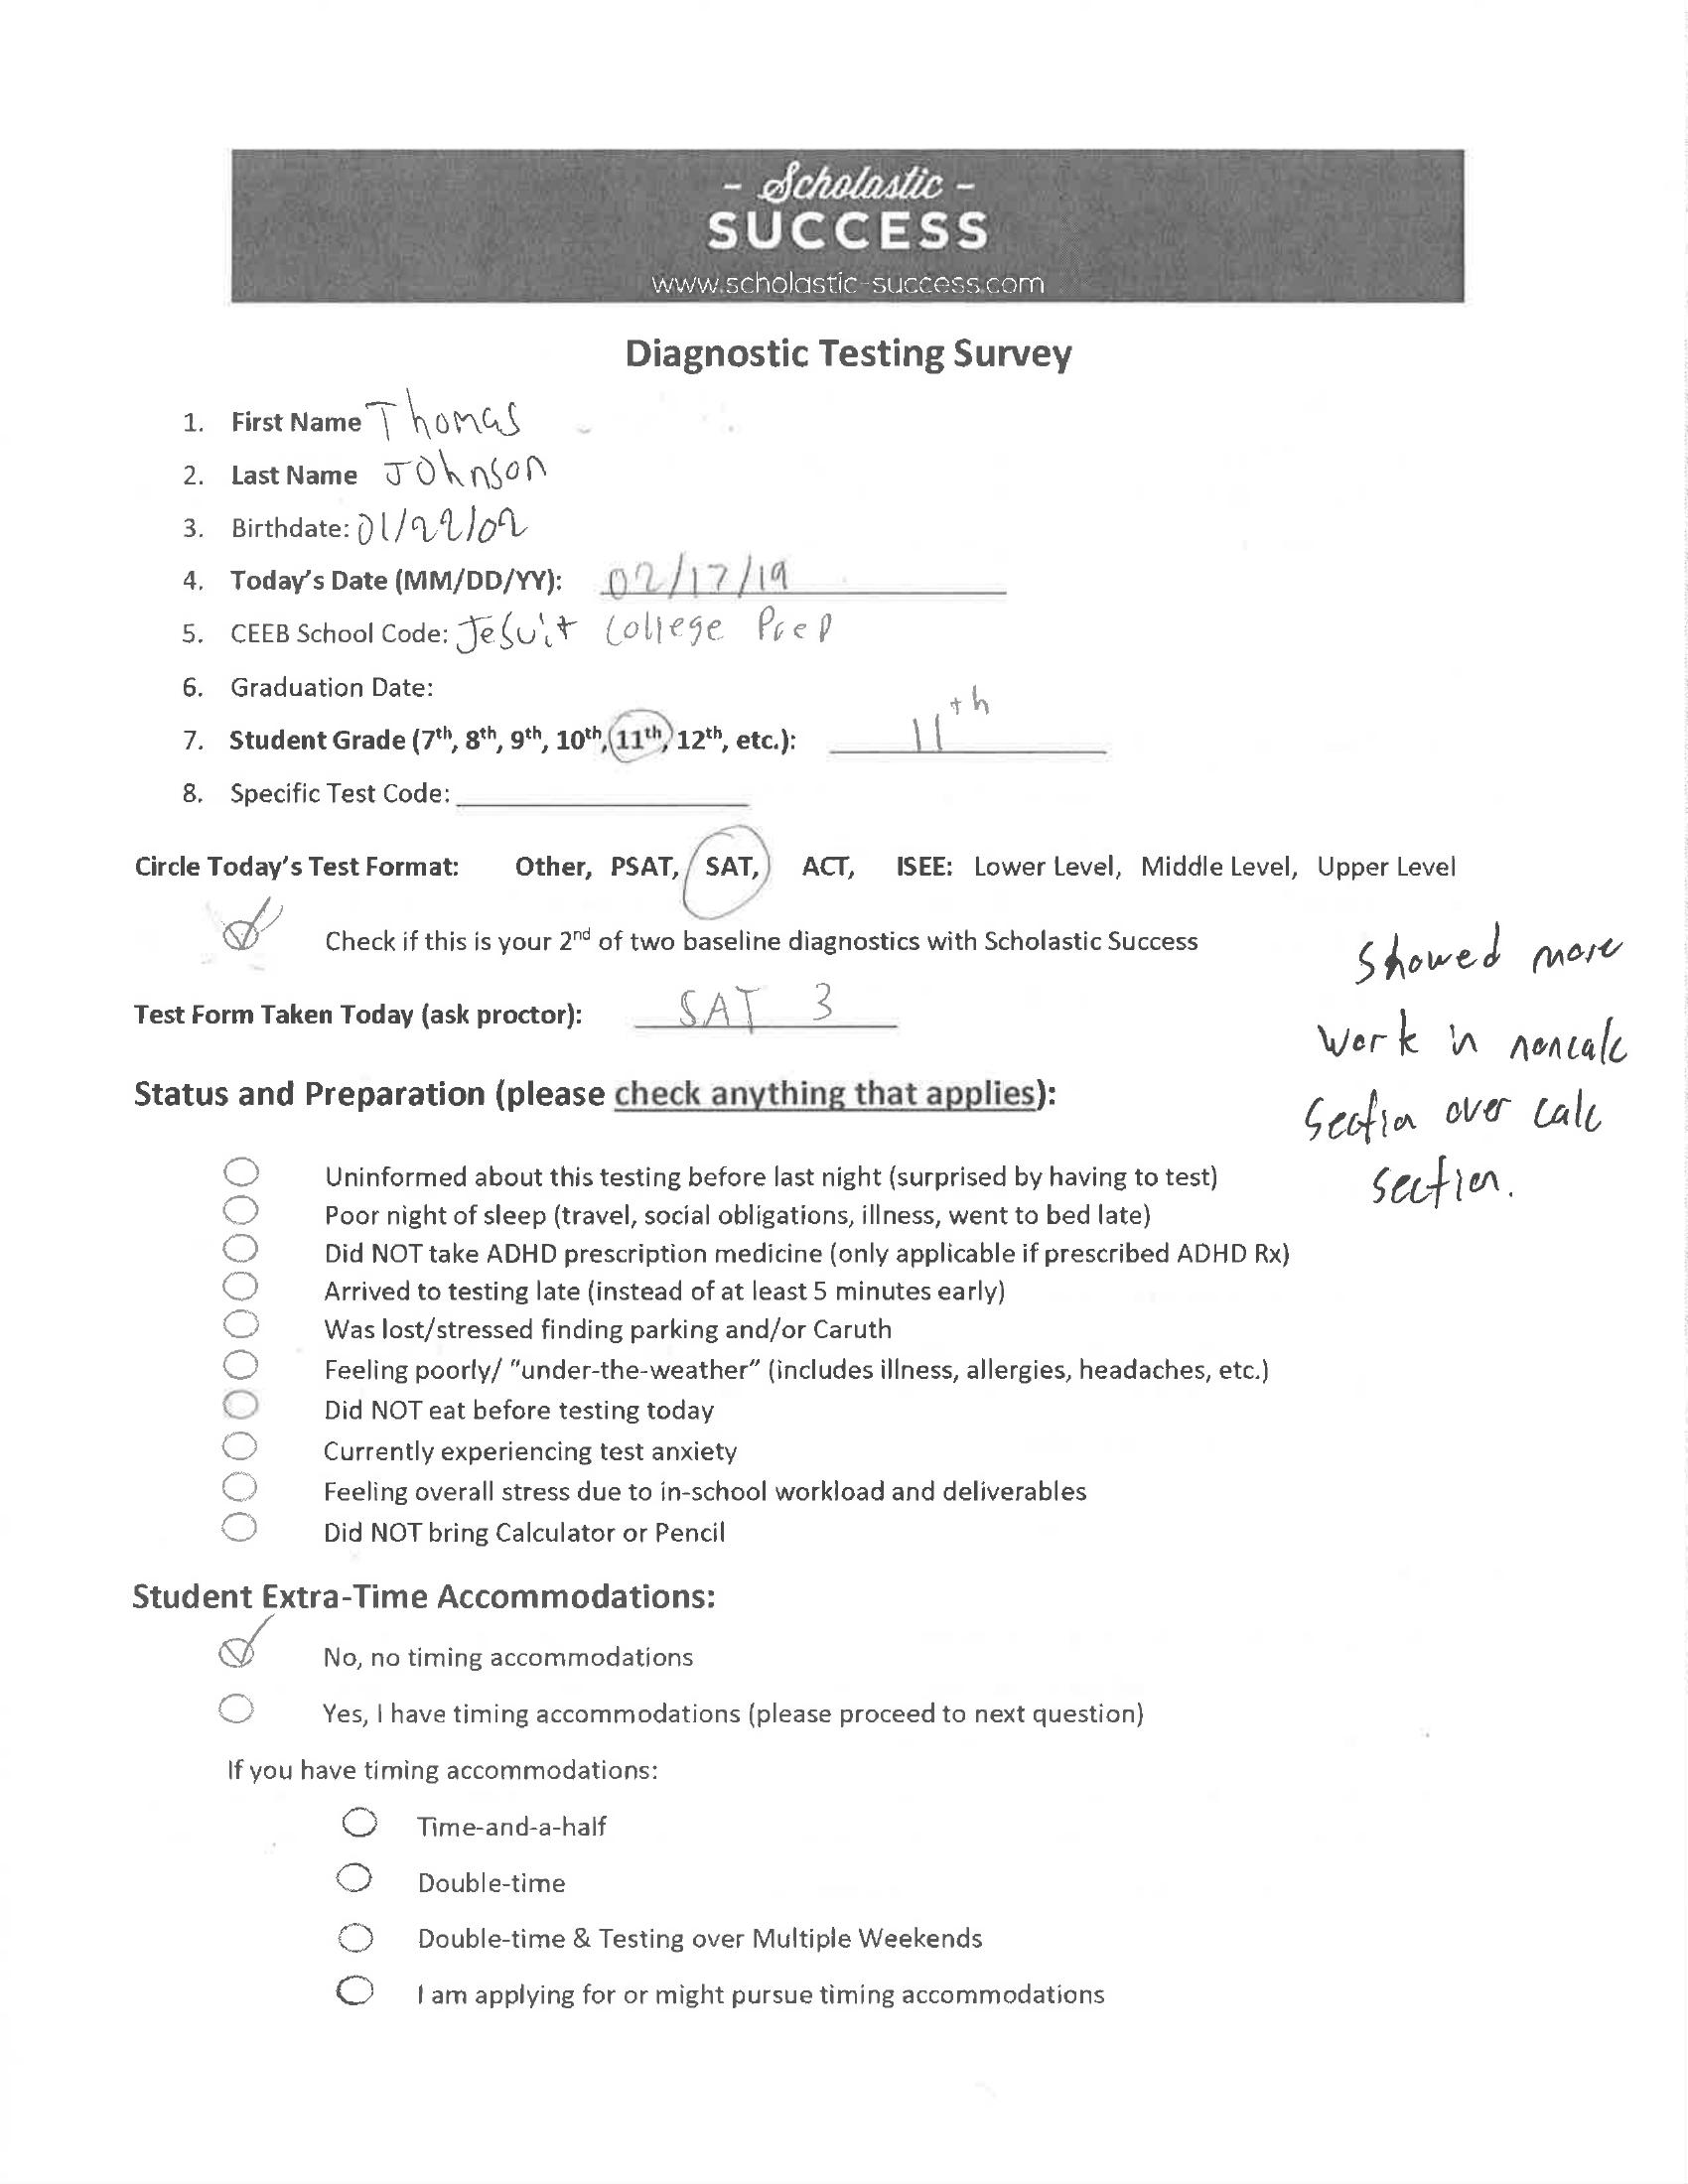 - Scholastic -
SUCCESS
www.scholastic-success.com
Diagnostic Testing Survey
1. First Name Thomas
2. Last Name Johnson
3. Birthdate: 01/22/02
4. Today's Date (MM/DD/YY): 02/17/19
5. CEEB School Code: Jesuit College Prep
6. Graduation Date:
7. Student Grade (7th, 8th, 9th, 10th, 11th, 12th, etc.): 11th
8. Specific Test Code:
Circle Today's Test Format: Other, PSAT, SAT, ACT, ISEE: Lower Level, Middle Level, Upper Level
Check if this is your 2nd of two baseline diagnostics with Scholastic Success
Test Form Taken Today (ask proctor): SAT 3
Showed more
work in noncalc
section over calc
section.
Status and Preparation (please check anything that applies):
Uninformed about this testing before last night (surprised by having to test)
Poor night of sleep (travel, social obligations, illness, went to bed late)
Did NOT take ADHD prescription medicine (only applicable if prescribed ADHD Rx)
Arrived to testing late (instead of at least 5 minutes early)
Was lost/stressed finding parking and/or Caruth
Feeling poorly/ "under-the-weather" (includes illness, allergies, headaches, etc.)
Did NOT eat before testing today
Currently experiencing test anxiety
Feeling overall stress due to in-school workload and deliverables
Did NOT bring Calculator or Pencil
Student Extra-Time Accommodations:
No, no timing accommodations
Yes, I have timing accommodations (please proceed to next question)
If you have timing accommodations:
Time-and-a-half
Double-time
Double-time & Testing over Multiple Weekends
I am applying for or might pursue timing accommodations